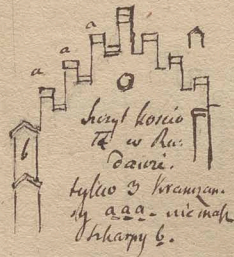 a
a
a
b
Szczyt kościo
ła w Ru-
dawie.
tylko 3 Kranzan-
sy a a a. nie mah
Szkarpy b.